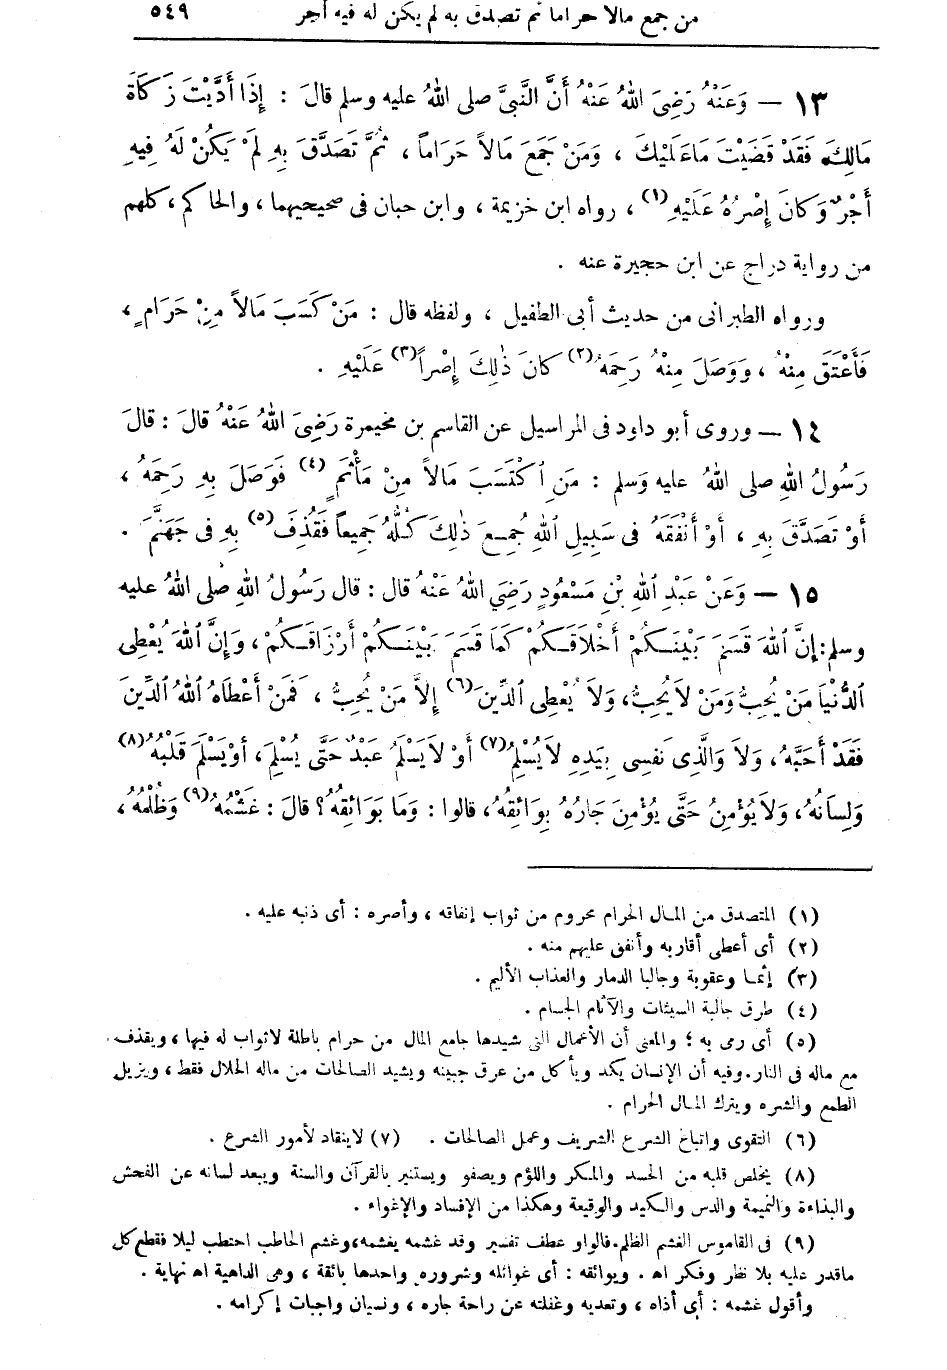 من جمع مالا حراما ثم تصدق به لم يكن له فيه أجر ٥٤٩
١٣ — وَعَنْهُ رَضِىَ اللهُ عَنْهُ أَنَّ النَّبِىَّ صلى اللهُ عليه وسلم قالَ : إِذَا أَدَّيْتَ زَكَاةَ
مَالِكَ فَقَدْ قَضَيْتَ مَاعَلَيْكَ ، وَمَنْ جَمَعَ مَالاً حَرَاماً ، ثُمَّ تَصَدَّقَ بِهِ لَمْ يَكُنْ لَهُ فِيهِ
أَجْرٌ وَكَانَ إِصْرُهُ عَلَيْهِ (١) ، رواه ابن خزيمة ، وابن حبان فى صحيحيهما ، والحاكم ، كلهم
من رواية دراج عن ابن حجيرة عنه .
ورواه الطبرانى من حديث أبى الطفيل ، ولفظه قال : مَنْ كَسَبَ مَالاً مِنْ حَرَامٍ ،
فَأَعْتَقَ مِنْهُ ، وَوَصَلَ مِنْهُ رَحِمَهُ (٢) كَانَ ذٰلِكَ إِصْراً (٣) عَلَيْهِ .
١٤ — وروى أبو داود فى المراسيل عن القاسم بن مخيمرة رَضِىَ اللهُ عَنْهُ قالَ : قالَ
رَسُولُ اللهِ صلى اللهُ عليه وَسلم : مَنِ ٱكْتَسَبَ مَالاً مِنْ مَأْثَمٍ (٤) فَوَصَلَ بِهِ رَحِمَهُ ،
أَوْ تَصَدَّقَ بِهِ ، أَوْ أَنْفَقَهُ فى سَبِيلِ اللهِ جُمِعَ ذٰلِكَ كُلُّهُ جَمِيعاً فَقُذِفَ (٥) بِهِ فى جَهَنَّمَ .
١٥ — وَعَنْ عَبْدِ اللهِ بْنِ مَسْعُودٍ رَضِيَ اللهُ عَنْهُ قالَ : قال رَسُولُ اللهِ صلى اللهُ عليه
وسلم : إِنَّ ٱللهَ قَسَمَ بَيْنَكُمْ أَخْلاَقَكُمْ كَمَا قَسَمَ بَيْنَكُمْ أَرْزَاقَكُمْ ، وَإِنَّ ٱللهَ يُعْطِى
ٱلدُّنْيَا مَنْ يُحِبُّ وَمَنْ لاَيُحِبُّ، وَلاَ يُعْطِى الدِّينَ (٦) إِلاَّ مَنْ يُحِبُّ ، فَمَنْ أَعْطَاهُ اللهُ الدِّينَ
فَقَدْ أَحَبَّهُ ، وَلاَ وَالَّذِى نَفْسِى بِيَدِهِ لاَيُسْلِمُ (٧) أَوْ لاَيَسْلَمُ عَبْدٌ حَتَّى يُسْلِمَ ، أَوْ يَسْلَمَ قَلْبُهُ (٨)
وَلِسَانُهُ ، وَلاَيُؤْمِنُ حَتَّى يُؤْمِنَ جَارُهُ بِوَائِقَهُ ، قالوا : وَمَا بَوَائِقُهُ ؟ قالَ : غَشْمُهُ (٩) وَظُلْمُهُ ،
(١) المتصدق من المال الحرام محروم من ثواب إنفاقه ، وأصره : أى ذنبه عليه .
(٢) أى أعطى أقاربه وأنفق عليهم منه .
(٣) إثما وعقوبة وجالبا الدمار والعذاب الأليم .
(٤) طرق جالبة السيئات والآثام الجسام .
(٥) أى رمى به ؛ والمعنى أن الأعمال التى شيدها جامع المال من حرام باطلة لاثواب له فيها ، ويقذف
مع ماله فى النار . وفيه أن الإنسان يكد ويأكل من عرق جبينه ويشيد الصالحات من ماله الحلال فقط ، ويزيل
الطمع والشره ويترك المال الحرام .
(٦) التقوى واتباع الشرع الشريف وعمل الصالحات . (٧) لاينقاد لأمور الشرع .
(٨) يخلص قلبه من الحسد والمكر واللؤم ويصفو ويستنير بالقرآن والسنة ويبعد لسانه عن الفحش
والبذاءة والنميمة والدس والكيد والوقيعة وهكذا من الإفساد والإغواء .
(٩) فى القاموس الغشم الظلم . فالواو عطف تفسير وقد غشمه يغشمه، وغشم الحاطب احتطب ليلا فقطع كل
ماقدر عليه بلا نظر وفكر اه . وبوائقه : أى غوائله وشروره واحدها بائقة ، وهى الداهية اه نهاية .
وأقول غشمه : أى أذاه ، وتعديه وغفلته عن راحة جاره ، ونسيان واجبات إكرامه .